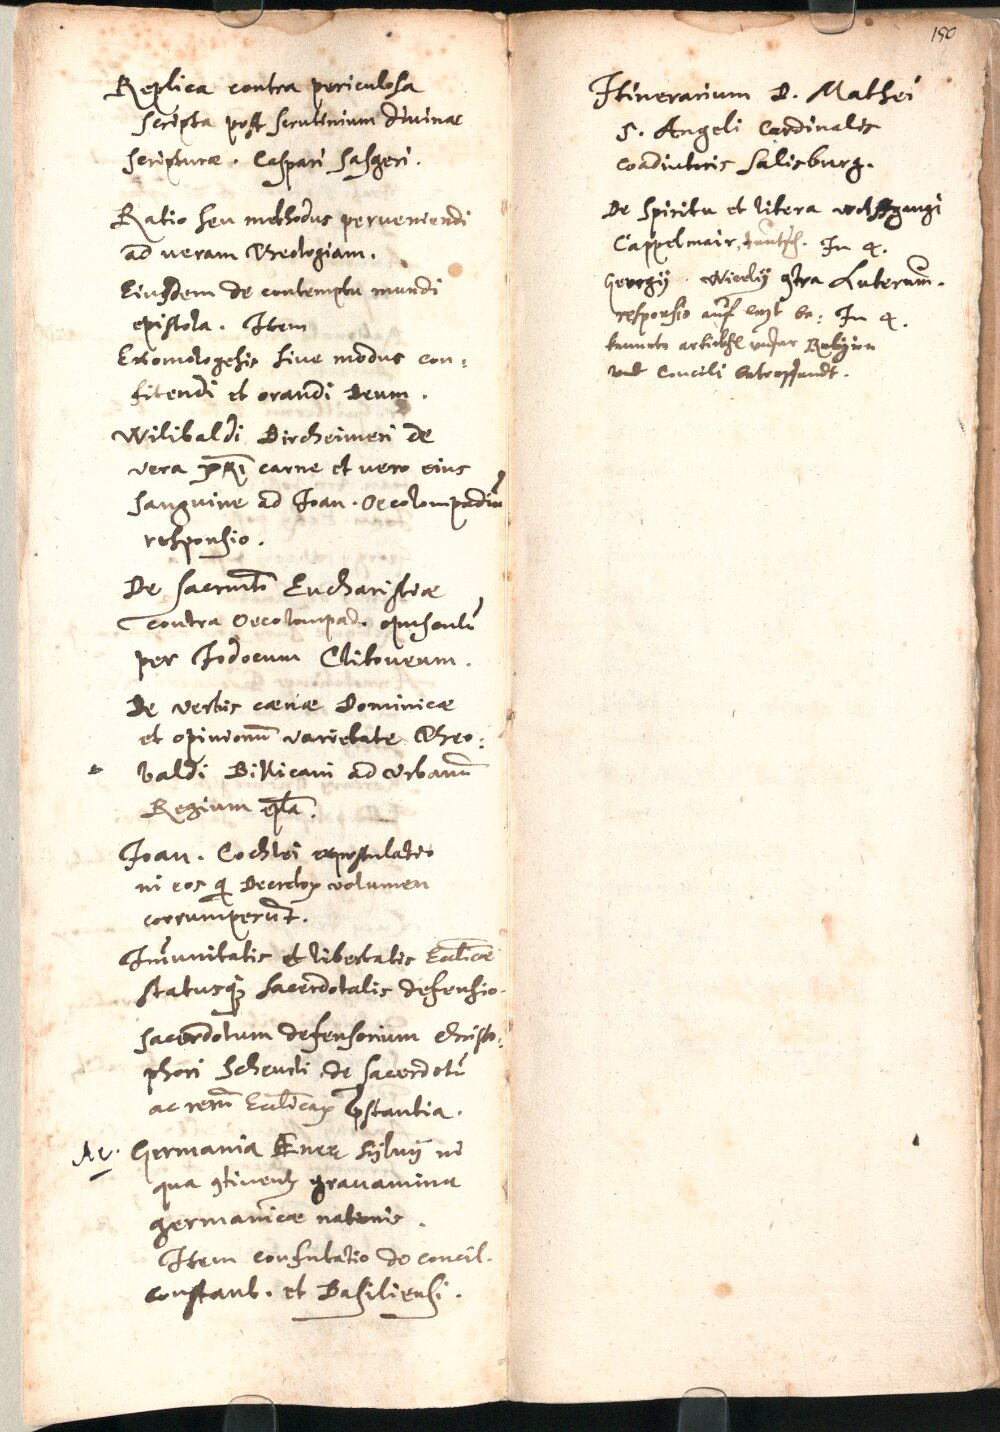 Replica contra periculosa
scripta post scrutinium divinæ
scripturæ. Caspari Sasgeri.
Ratio seu methodus perveniendi
ad veram Theologiam.
Eiusdem de contemptu mundi
epistola. Item
Exomologesis sive modus con:
fitendi et orandi Deum.
Wilibaldi Birckeimeri de
vera carne et vero eius
sanguine ad Ioan. Oecolompadiū
responsio.
De sacrmto Eucharistiæ
contra Oecolompad. opusculū
per Iodocum Clitoveum.
De verbis cænæ Dominicæ
et opinionū varietate Theo:
baldi Billicani ad Urbanū
Regium epla.
Ioan. Cochlei expostulatio
in eos q Decretoꝝ volumen
corrumperūt.
Imunitatis et libertatis Ecclicæ
statusq sacerdotalis defensio.
Sacerdotum defensorium Christo:
phori Scheurli de sacerdotū
ac rerū Ecclicaꝝ pstantia.
Germania Eneę Sylvij in
qua ꝯtinentꝭ gravamina
germanicæ nationis.
Item confutatio de concil.
Constant. et Basiliensi.
190
Itinerarium D. Mathei
S. Angeli Cardinalis
coadiutoris Salisburg.
De Spiritu et litera Wolffgangi
Cappelmair, teutsch. In 4.
Georgij Wicelij ꝯtra Luterum.
responsio auf be: In 4.
kennete artickhl unser Religion
und Concili betreffendt.